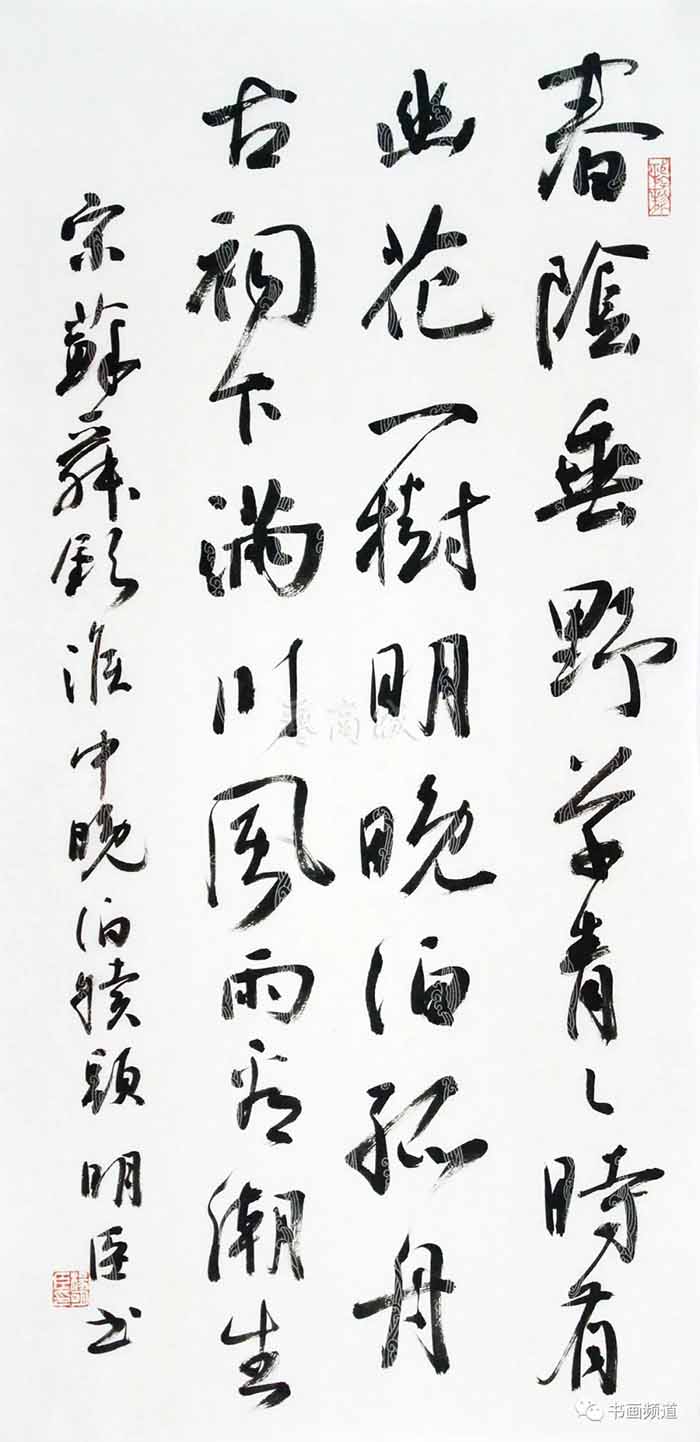 春陰垂野草青々時有
幽花一樹明晚泊孤舟
古祠下滿川風雨看潮生
宋蘇舜欽淮中晚泊犢頭 明臣書
藝商城
书画频道